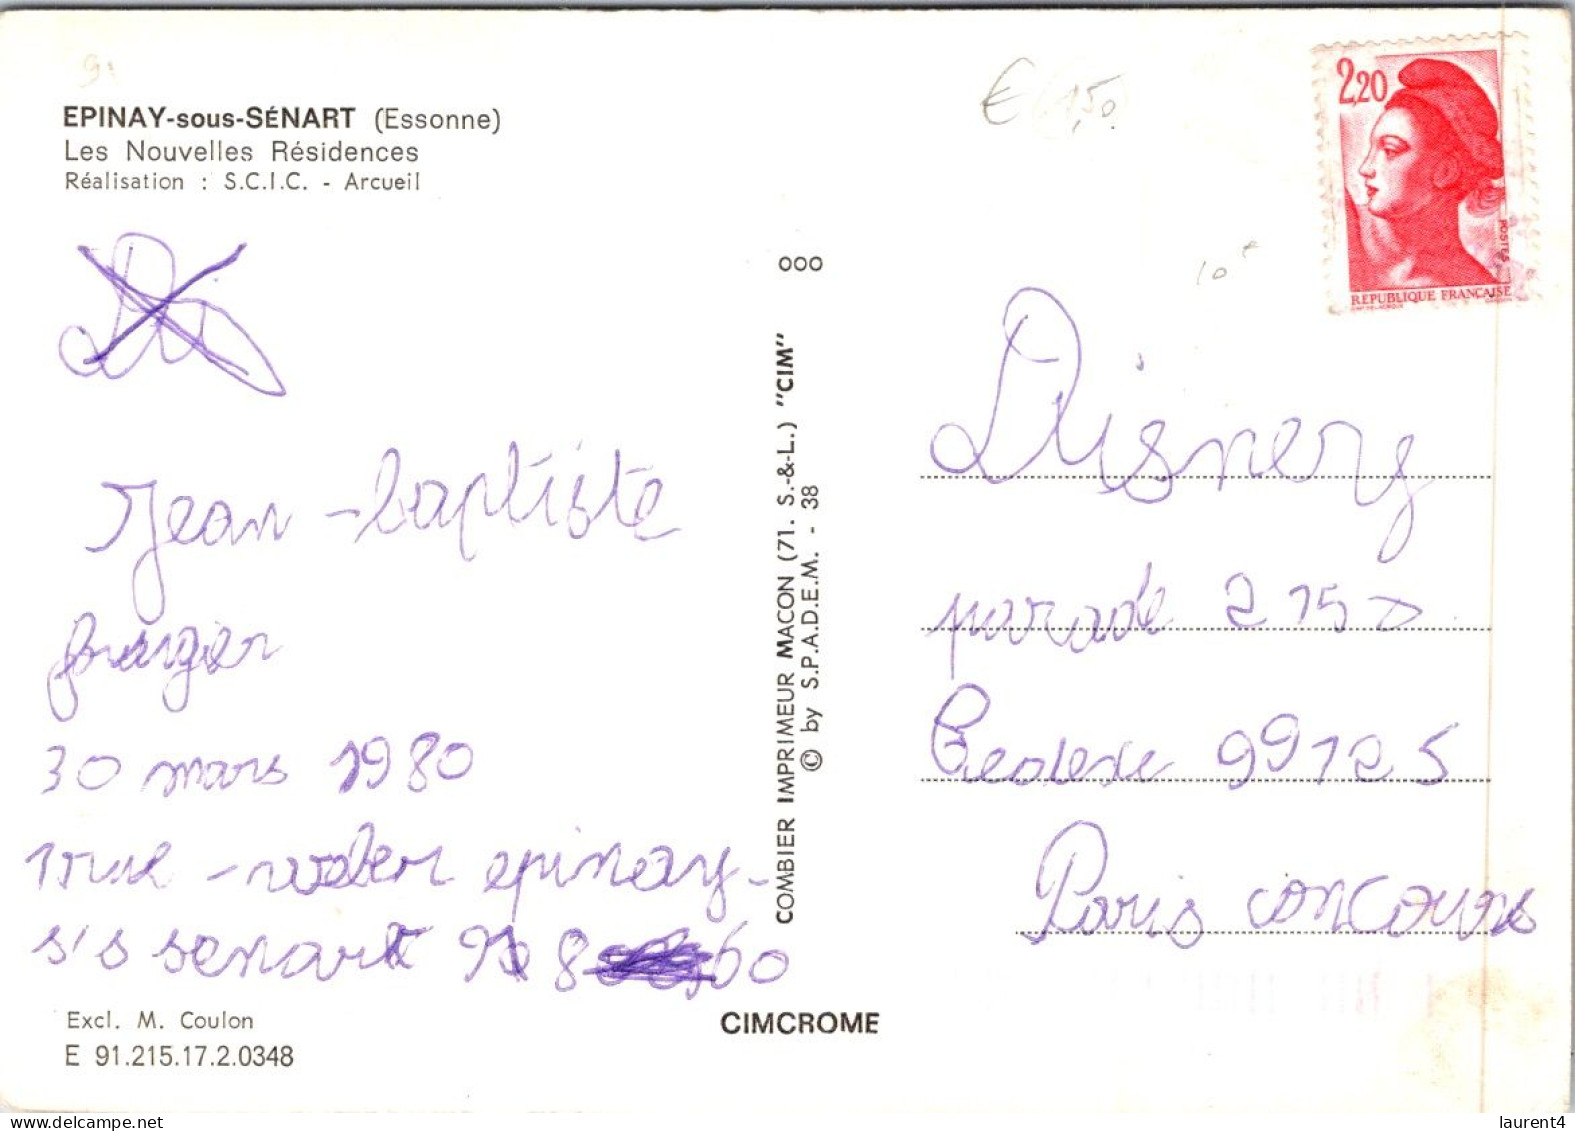 EPINAY-sous-SÉNART (Essonne)
Les Nouvelles Résidences
Réalisation : S.C.I.C. - Arcueil
Jean-baptiste
30 mars 1980
epinay-
s's senart 91 8 60
Excl. M. Coulon
E 91.215.17.2.0348
000
COMBIER IMPRIMEUR MACON (71. S.-&-L.) "CIM"
© by S.P.A.D.E.M. - 38
CIMCROME
€ 1,50
10
2,20
POSTES
REPUBLIQUE FRANÇAISE
Disney
parade 2 15
99125
Paris concours
laurent4